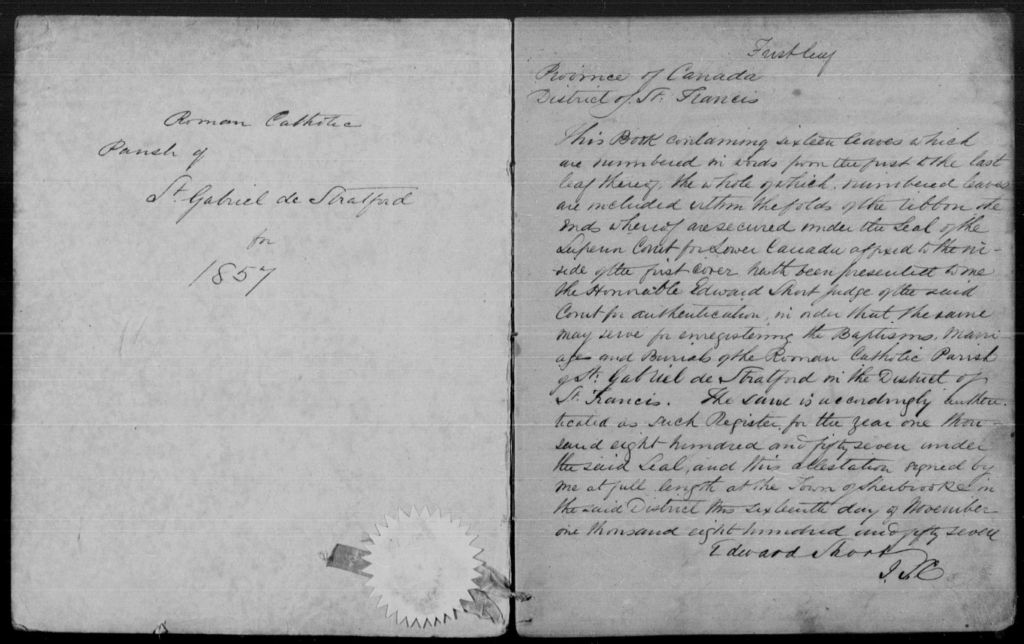 Roman Catholic
Parish of
St. Gabriel de Stratford
for
1857
First leaf
Province of Canada
District of St. Francis
This Book containing sixteen leaves which
are numbered in words from the first to the last
leaf thereof, the whole of which numbered leaves
are included within the folds of the ribbon the
ends whereof are secured under the Seal of the
Superior Court for Lower Canada affixed to the in-
side of the first cover hath been presented to me
the Honorable Edward Short Judge of the said
Court for authentication, in order that the same
may serve for enregistering the Baptisms, Marri-
ages and Burials of the Roman Catholic Parish
of St. Gabriel de Stratford in the District of
St. Francis. The same is accordingly authen-
ticated as such Register, for the year one thou-
sand eight hundred and fifty seven under
the said Seal, and this attestation signed by
me at full length at the Town of Sherbrooke in
the said District this sixteenth day of November
one thousand eight hundred and fifty seven
Edward Short
J.S.C.